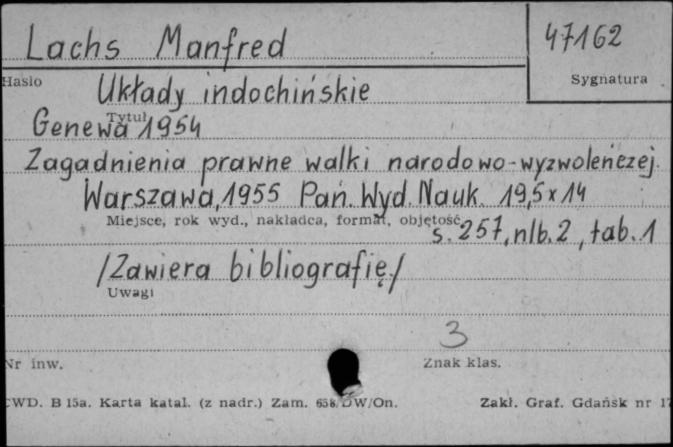 Lachs Manfred 47162
Hasło Sygnatura
Układy indochińskie
Tytuł
Genewa 1954
Zagadnienia prawne walki narodowo-wyzwoleńczej.
Warszawa, 1955 Pań. Wyd. Nauk. 19,5 x 14
Miejsce, rok wyd., nakładca, format, objętość
s. 257, nlb. 2, tab. 1
/Zawiera bibliografię./
Uwagi
3
Nr inw. Znak klas.
CWD. B 15a. Karta katal. (z nadr.) Zam. 658/DW/On. Zakł. Graf. Gdańsk nr 17